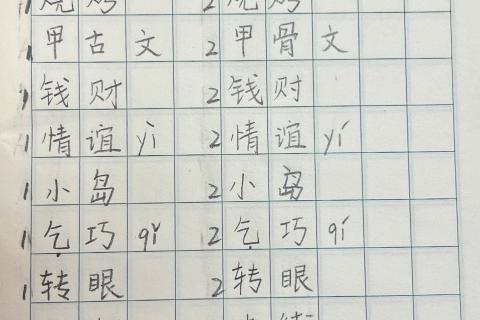 1 甲古文 2 甲骨文
1 钱财 2 钱财
1 情谊 yì 2 情谊 yí
1 小岛 2 小岛
1 乞巧 qǐ 2 乞巧 qí
1 转眼 2 转眼